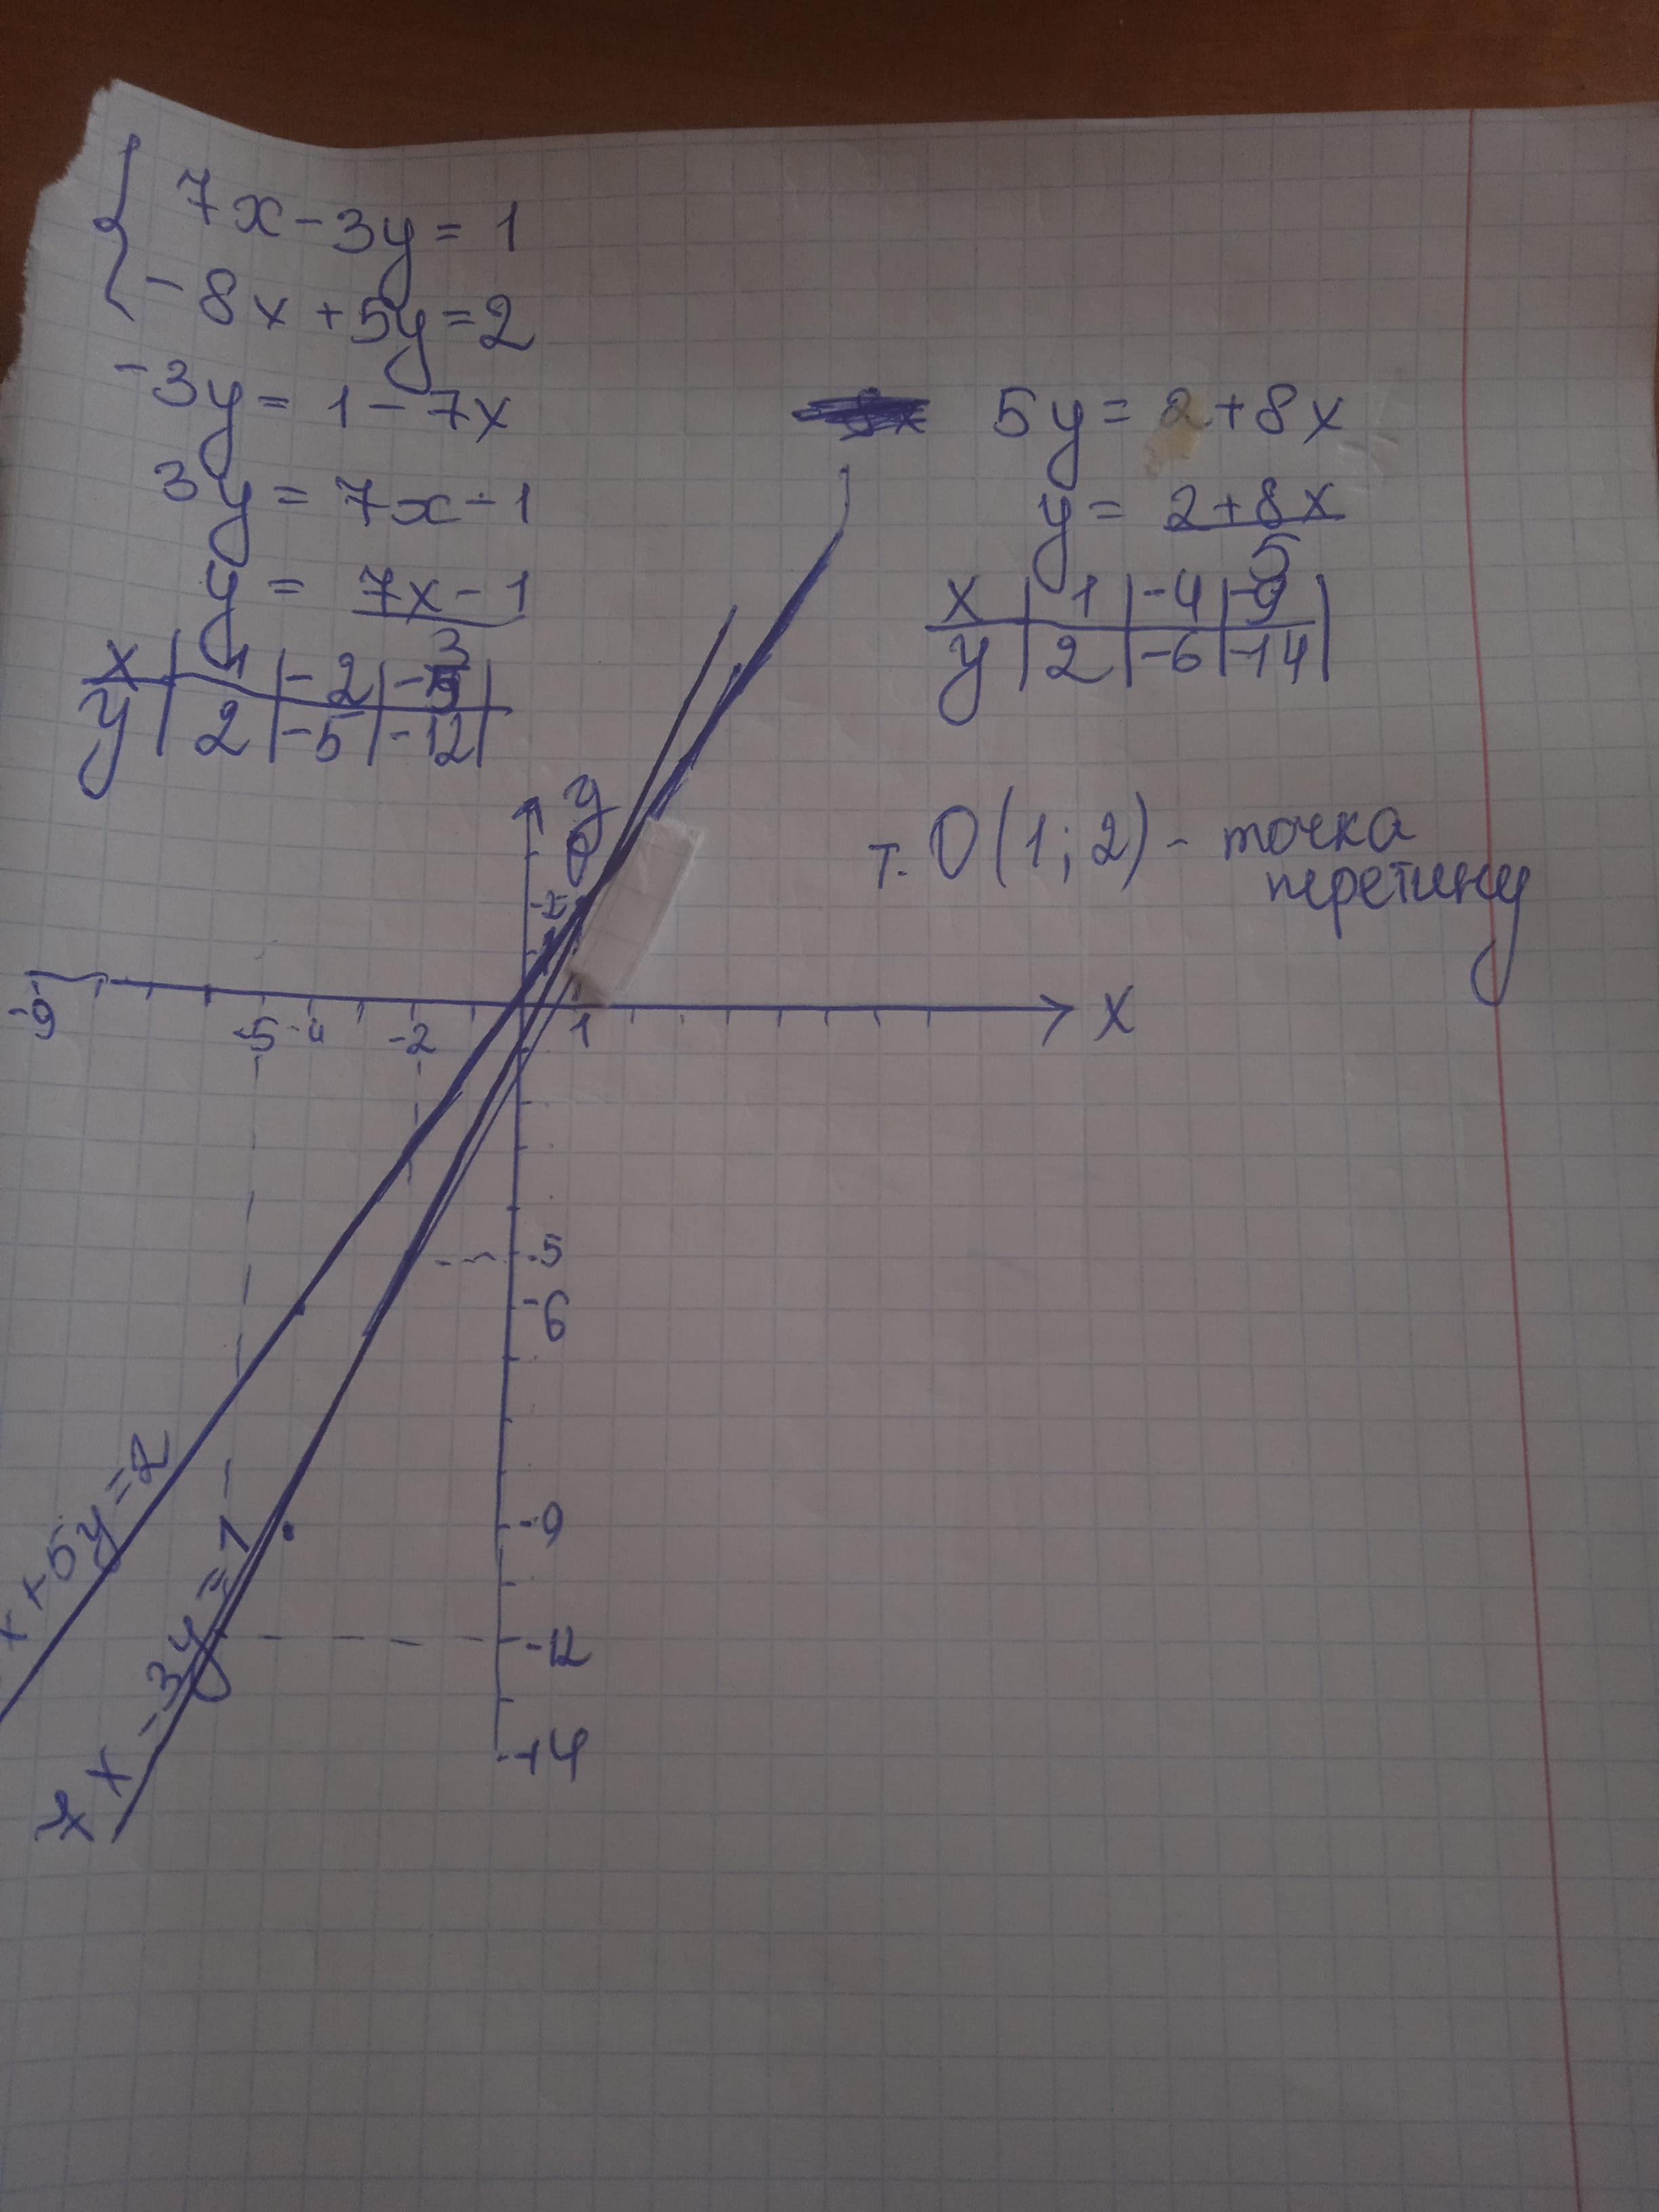 7x - 3y = 1
-8x + 5y = 2
-3y = 1 - 7x
3y = 7x - 1
y = 7x - 1
3
x | 1 | -2 | -5
y | 2 | -5 | -12 |
5y = 2 + 8x
y = 2 + 8x
5
x | 1 | -4 | -9 |
y | 2 | -6 | -14 |
т. O(1; 2) - точка
перетину
y
O
2
-9 -5 -4 -2 1 x
-5
-6
-9
-12
-14
x + 5y = 2
7x - 3y = 1